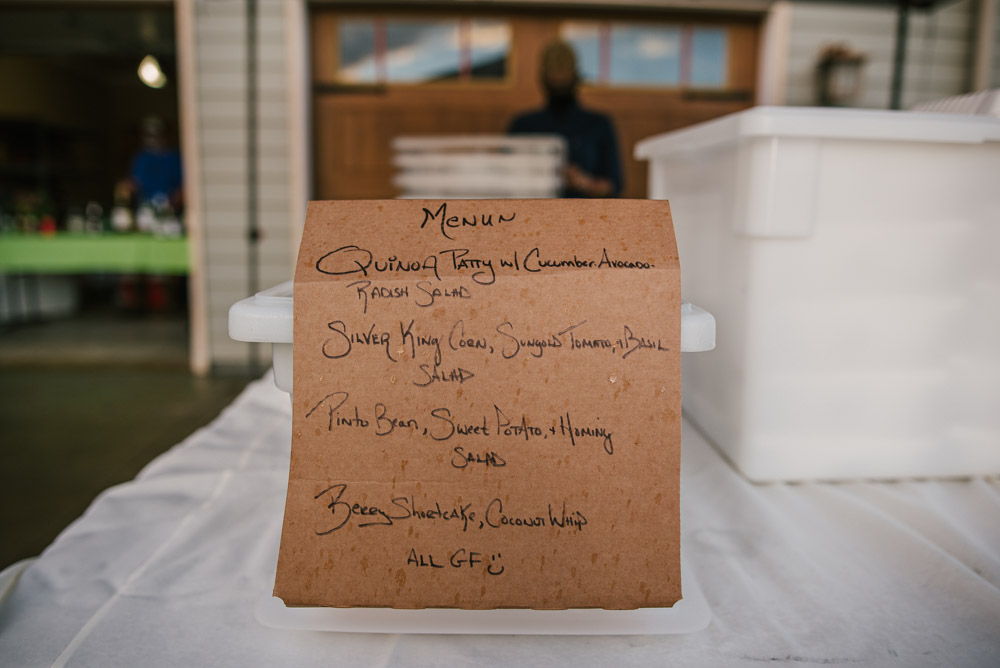 Menun
Quinoa Patty w/ Cucumber-Avocado-
Radish Salad
Silver King Corn, Sungold Tomato, + Basil
Salad
Pinto Bean, Sweet Potato, + Hominy
Salad
Berry Shortcake, Coconut Whip
ALL GF :)